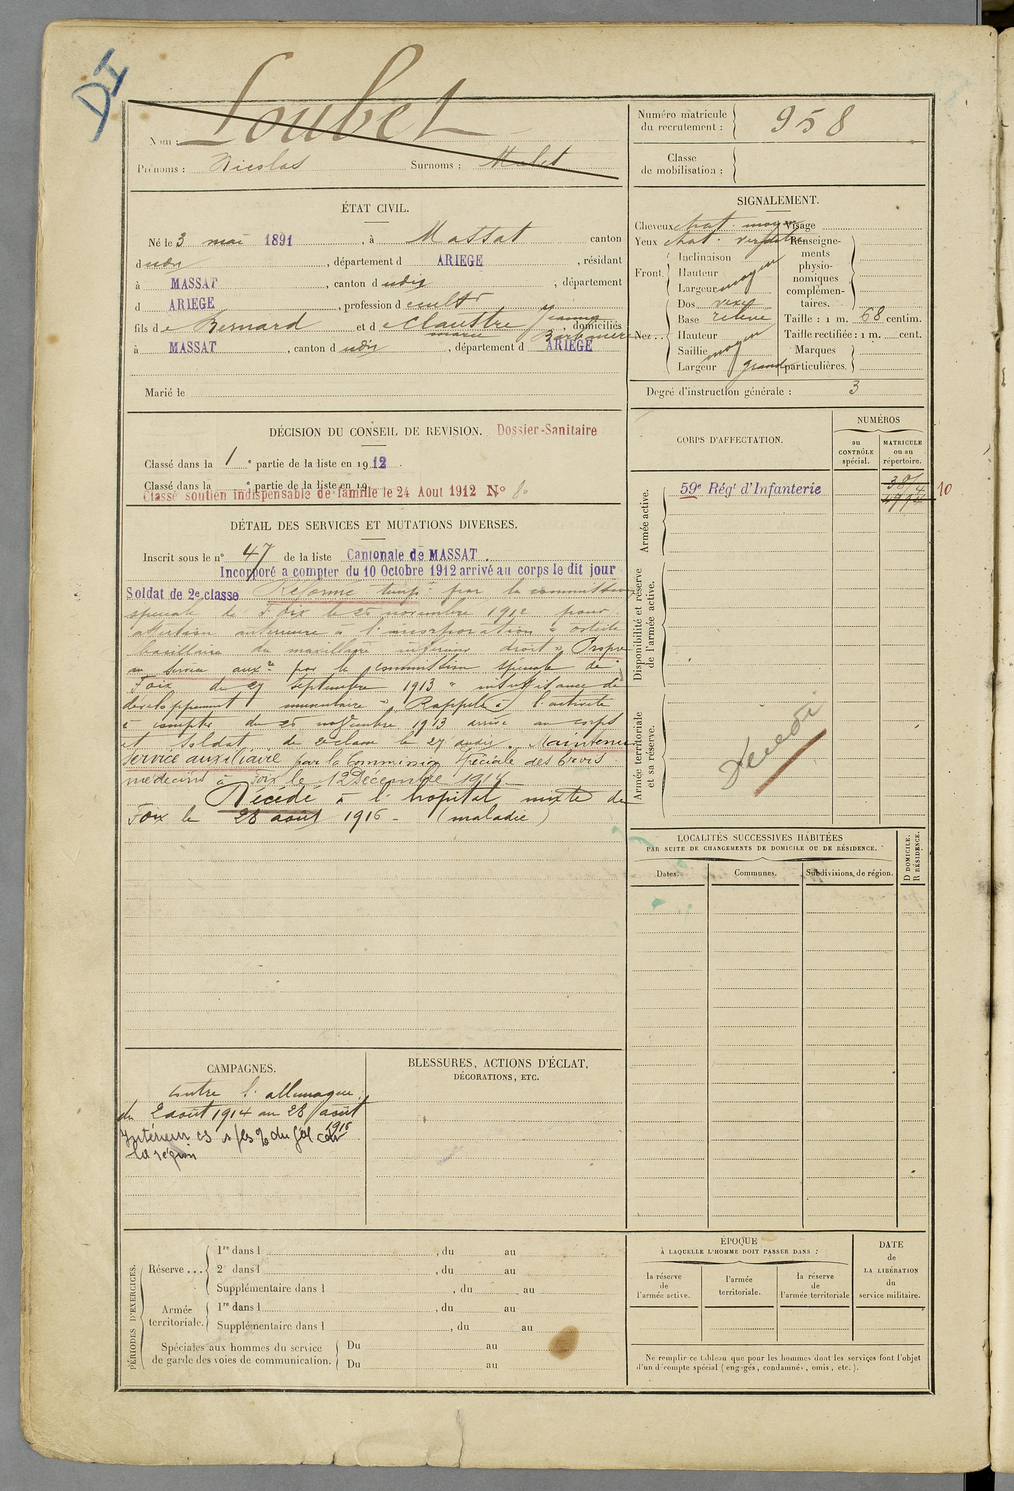 DI
Nom : Loubet
Prénoms : Nicolas Surnoms : Malet
Numéro matricule du recrutement : 958
Classe de mobilisation :
ÉTAT CIVIL.
Né le 3 mai 1891, à Massat canton
d udis, département d ARIEGE, résidant
à MASSAT, canton d udis, département
d ARIEGE, profession de cultr
fils de Bernard et de Claustre Jeanne, domiciliés
marie
à MASSAT, canton d udis, département d ARIEGE
Marié le
SIGNALEMENT.
Cheveux chat. moyen Visage
Yeux chat. Renseignements physionomiques complémentaires.
Front Inclinaison
Hauteur
Largeur moyen
Nez Dos vexe
Base relevé
Hauteur
Saillie moyen
Largeur grand
Taille : 1 m. 68 centim.
Taille rectifiée : 1 m. cent.
Marques particulières.
Degré d'instruction générale : 3
DÉCISION DU CONSEIL DE REVISION. Dossier-Sanitaire
Classé dans la 1e partie de la liste en 1912.
Classé dans la e partie de la liste en 19
Classé soutien indispensable de famille le 24 Aout 1912 N° 80
CORPS D'AFFECTATION.
NUMÉROS
au CONTRÔLE spécial.
MATRICULE ou au répertoire.
Armée active.
59e Régt d'Infanterie
4914
10
Disponibilité et réserve de l'armée active.
Armée territoriale et sa réserve.
Décédé
DÉTAIL DES SERVICES ET MUTATIONS DIVERSES.
Inscrit sous le n° 47 de la liste Cantonale de MASSAT.
Incorporé a compter du 10 Octobre 1912 arrivé au corps le dit jour
Soldat de 2e classe Réformé tempt par la commission
speciale de Foix le 25 novembre 1912 pour
affection anterieure à l'incorporation " osteite
bacillaire du maxillaire inferieur droit " Propre
au service auxre par la commission speciale de
Foix du 27 septembre 1913 " insuffisance de
développement musculaire " Rappelé à l'activité
à compter du 25 novembre 1913 arrivé au corps
et soldat de 2e classe le 27 dudit. Maintenu
service auxiliaire par la Commission Spéciale des trois
médecins à Foix le 12 Décembre 1914
Décédé à l'hopital mixte de
Foix le 28 août 1916 - (maladie)
LOCALITÉS SUCCESSIVES HABITÉES
PAR SUITE DE CHANGEMENTS DE DOMICILE OU DE RÉSIDENCE.
Dates. Communes. Subdivisions de région.
D DOMICILE. R RÉSIDENCE.
CAMPAGNES.
contre l'allemagne
du 2 août 1914 au 28 août
1916
Intérieur cs
la région
BLESSURES, ACTIONS D'ÉCLAT,
DÉCORATIONS, ETC.
PÉRIODES D'EXERCICES.
Réserve ...
1re dans l , du au
2e dans l , du au
Supplémentaire dans l , du au
Armée territoriale.
1re dans l , du au
Supplémentaire dans l , du au
Spéciales aux hommes du service de garde des voies de communication.
Du au
Du au
ÉPOQUE
À LAQUELLE L'HOMME DOIT PASSER DANS :
la réserve de l'armée active.
l'armée territoriale.
la réserve de l'armée territoriale
DATE de LA LIBÉRATION du service militaire.
Ne remplir ce tableau que pour les hommes dont les services font l'objet
d'un décompte spécial (engagés, condamnés, omis, etc.).